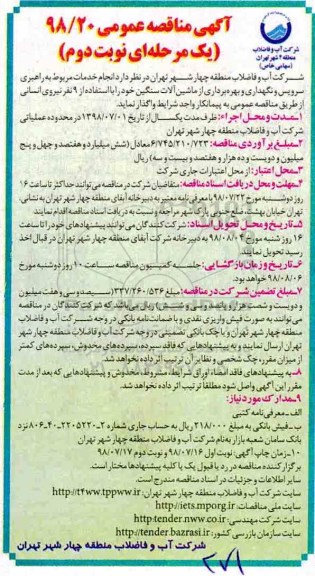 آگهی مناقصه عمومی ۹۸/۲۰
(یک مرحله‌ای نوبت دوم)
شرکت آب و فاضلاب
منطقه ۴ شهر تهران
(سهامی خاص)
شرکت آب و فاضلاب منطقه چهار شهر تهران در نظر دارد انجام خدمات مربوط به راهبری
سرویس و نگهداری و بهره‌برداری از ماشین آلات سنگین خود را با استفاده از ۹ نفر نیروی انسانی
از طریق مناقصه عمومی به پیمانکار واجد شرایط واگذار نماید.
۱ـ مدت و محل اجراء: ظرف مدت یکسال از تاریخ ۱۳۹۸/۰۷/۰۱ در محدوده عملیاتی
شرکت آب و فاضلاب منطقه چهار شهر تهران
۲ـ مبلغ برآوردی مناقصه: ۶/۷۴۵/۲۱۰/۷۲۳ معادل (شش میلیارد و هفتصد و چهل و پنج
میلیون و دویست و ده هزار و هفتصد و بیست و سه) ریال
۳ـ محل اعتبار: از محل اعتبارات جاری شرکت
۴ـ مهلت و محل دریافت اسناد مناقصه: متقاضیان شرکت در مناقصه می‌توانند حداکثر تا ساعت ۱۶
روز دوشنبه مورخ ۹۸/۰۷/۲۲ با معرفی نامه معتبر به دبیرخانه آبفای منطقه چهار شهر تهران به نشانی:
تهران خیابان بهشت، ضلع جنوبی پارک شهر مراجعه و نسبت به دریافت اسناد مناقصه اقدام نمایند
۵ـ تاریخ و محل تحویل اسناد: شرکت کنندگان می‌توانند پیشنهادهای خود را تا ساعت
۱۶ روز شنبه مورخ ۹۸/۰۸/۰۴ به دبیرخانه شرکت آبفای منطقه چهار شهر تهران در قبال اخذ
رسید تحویل نمایند.
۶ـ تاریخ و زمان بازگشایی: جلسه کمیسیون مناقصه ساعت ۱۰ روز دوشنبه مورخ
۹۸/۰۸/۰۶ خواهد بود
۷ـ مبلغ تضمین شرکت در مناقصه: مبلغ ۳۳۷/۲۶۰/۵۳۶ سیصد و سی و هفت میلیون
و دویست و شصت هزار و پانصد و سی و شش ریال می‌باشد که شرکت کنندگان در مناقصه
می‌توانند به صورت فیش واریزی نقدی و یا ضمانت‌نامه بانکی در وجه شرکت آب و فاضلاب
منطقه چهار شهر تهران و یا چک بانکی تضمینی در وجه شرکت آب و فاضلاب منطقه چهار شهر
تهران ارسال نمایند و به پیشنهادهایی که فاقد سپرده، سپرده‌های مخدوش، سپرده‌های کمتر
از میزان مقرر، چک شخصی و نظایر آن ترتیب اثر داده نخواهد شد.
۸ـ به پیشنهادهای فاقد امضاء اوراق شرایط، مشروط، مخدوش و پیشنهادهایی که بعد از مدت
مقرر این آگهی واصل شود مطلقا ترتیب اثر داده نخواهد شد.
۹ـ مدارک مورد نیاز:
الف ـ معرفی‌نامه کتبی
ب ـ فیش بانکی به مبلغ ۲۱۸/۰۰۰ ریال به حساب جاری شماره ۲ـ۲۲۰۵۲۲۰ـ۴۰ـ۸۰۶ نزد
بانک سامان شعبه بازار به‌نام شرکت آب و فاضلاب منطقه چهار شهر تهران
۱۰ـ زمان چاپ آگهی: نوبت اول ۹۸/۰۷/۱۶ و نوبت دوم ۹۸/۰۷/۱۷
برگزارکننده مناقصه در رد یا قبول یک یا کلیه پیشنهادها مختار است.
سایر اطلاعات و جزئیات در اسناد مناقصه مندرج است.
سایت شرکت آب و فاضلاب منطقه چهار شهر تهران: http://t4ww.tppww.ir
سایت ملی مناقصات: http://iets.mporg.ir
سایت شرکت مهندسی: http:tender.nww.co.ir
سایت سازمان بازرسی کشور: http://tender.bazrasi.ir
شرکت آب و فاضلاب منطقه چهار شهر تهران